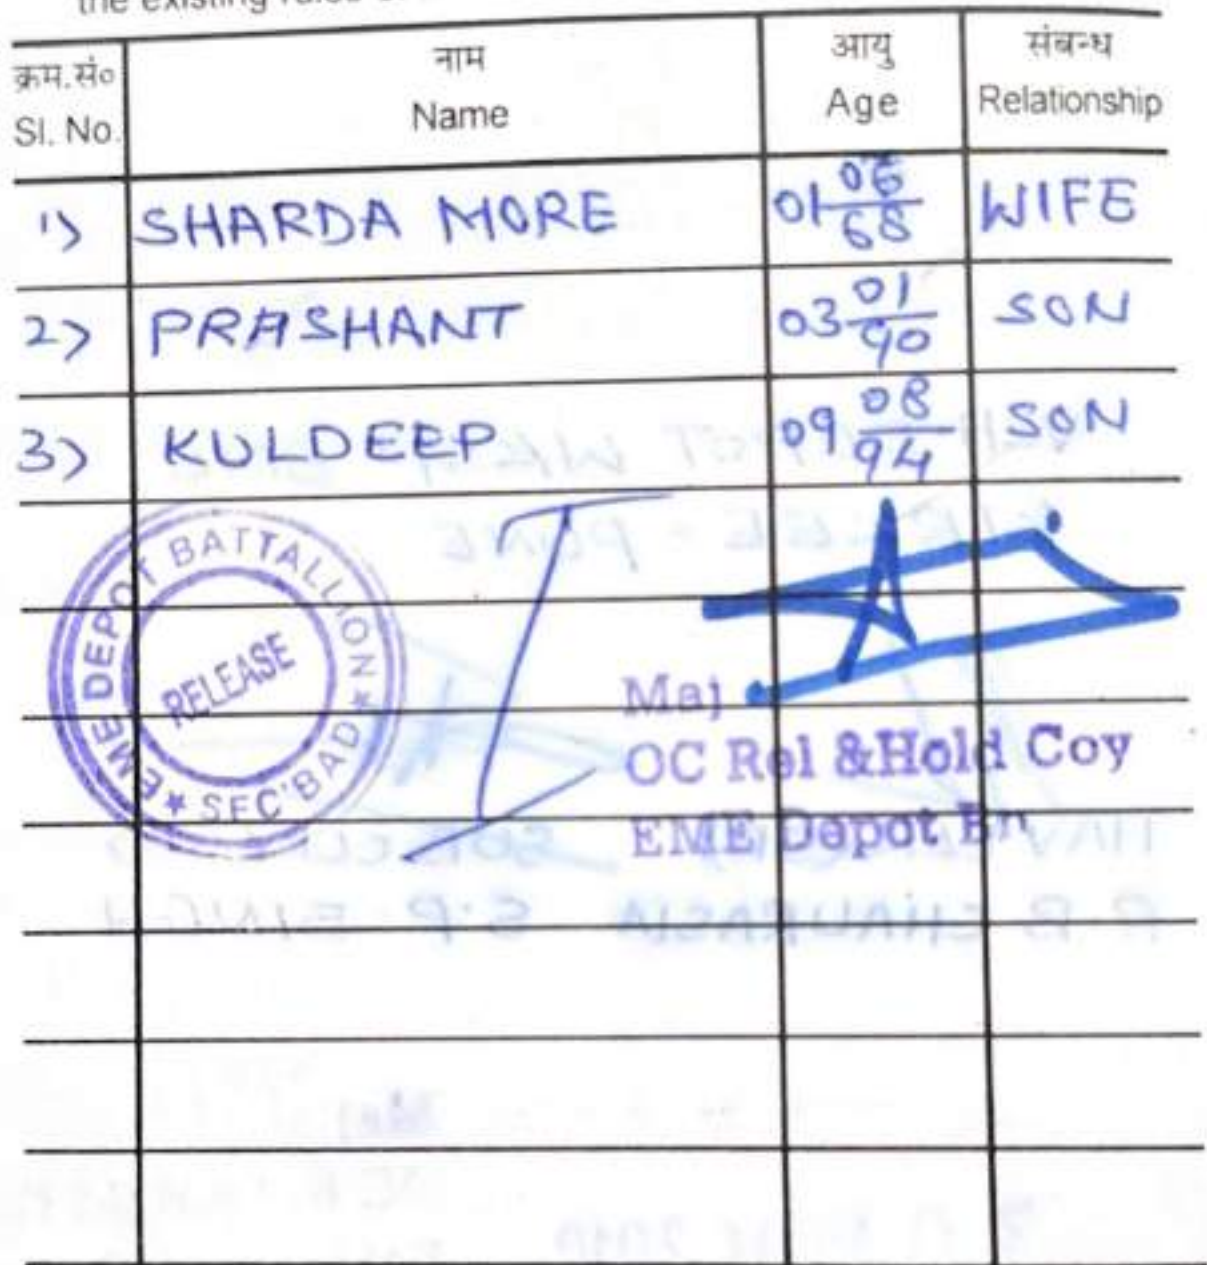 the existing rules
क्रम.सं० नाम आयु संबन्ध
Sl. No. Name Age Relationship
1) SHARDA MORE 01 06/68 WIFE
2) PRASHANT 03 01/90 SON
3) KULDEEP 09 08/94 SON
EME DEPOT BATTALLION
RELEASE
★ SEC'BAD ★
Maj
OC Rel &Hold Coy
EME Depot Bn